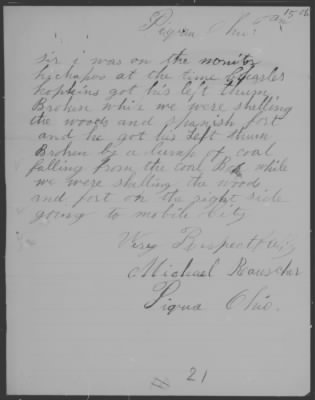 Piqua Ohio Jan 15 06
Sir i was on the monitor
kickapoo at the time Charles
hopkins got his left thum
Broken while we were shelling
the woods and Spanish fort
and he got his Left thum
Broken by a lump of coal
falling from the coal Box while
we were shelling the woods
and fort on the right side
going to mobile City
Very Respectfully
Michael Rauscher
Piqua Ohio.
21